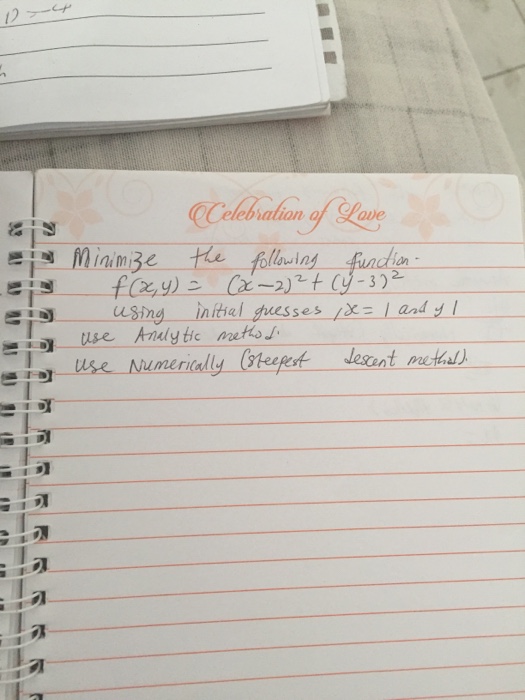 1) → 4
Celebration of Love
Minimize the following function.
f(x,y) = (x-2)² + (y-3)²
using initial guesses, x = 1 and y 1
use Analytic method.
use Numerically (steepest descent method).